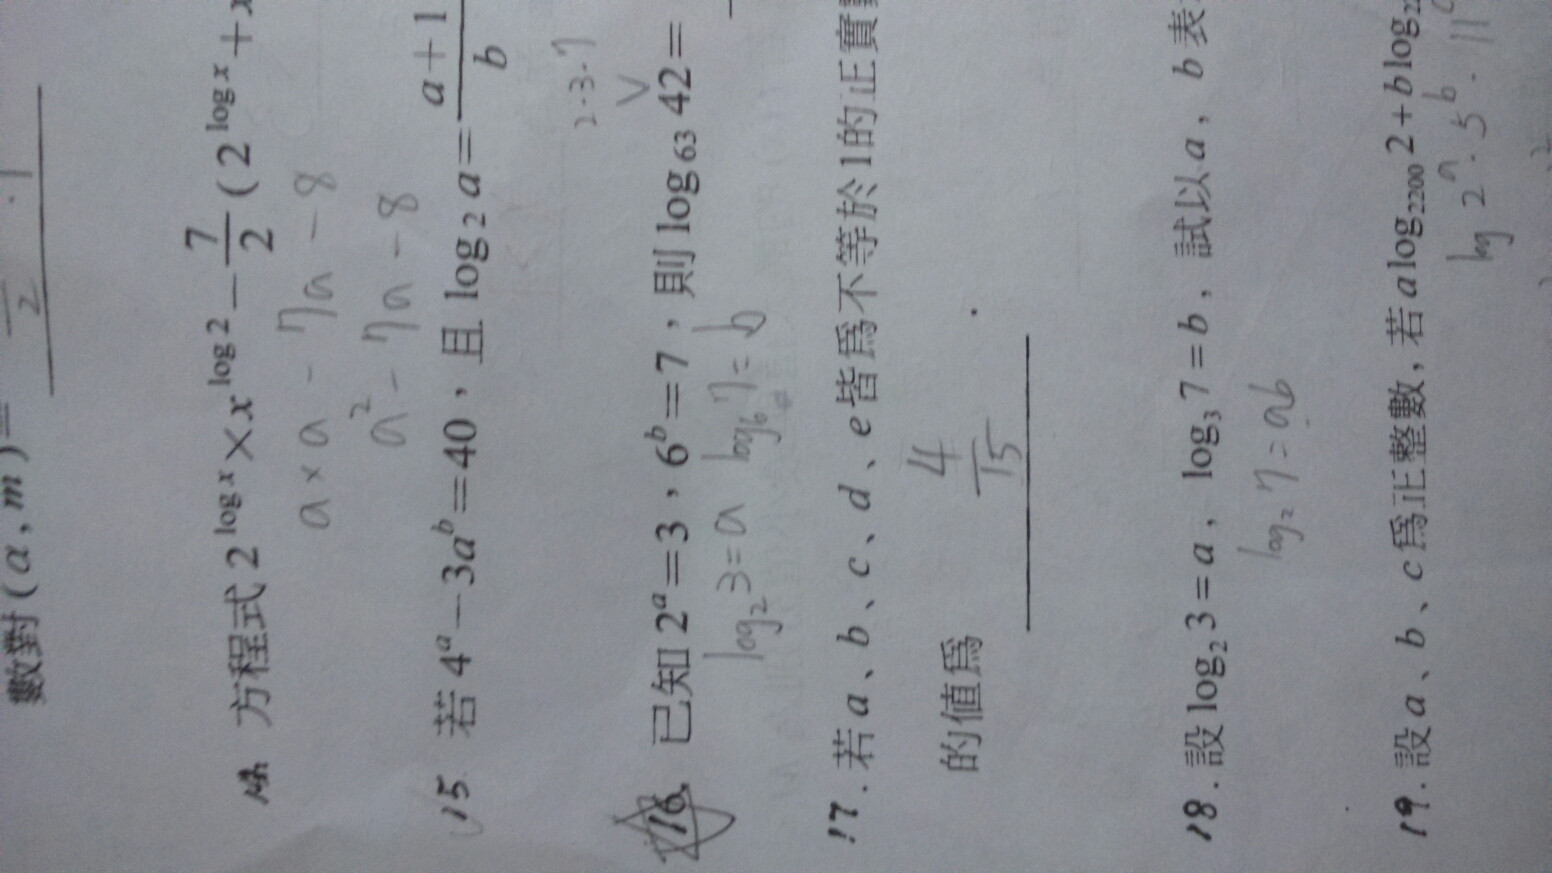 數對(a,m)=
2
方程式 2^{log x}×x^{log 2}-\frac{7}{2}(2^{log x}+
a×a-7a-8
a²-7a-8
15 若 4^a-3a^b=40，且 log₂a=\frac{a+1}{b}
2·3·7
16. 已知 2^a=3，6^b=7，則 log₆₃42=
log₂3=a log₆7=b
17. 若 a、b、c、d、e 皆爲不等於1的正實
的值爲 \frac{4}{15}
18. 設 log₂3=a，log₃7=b，試以 a，b 表
log₂7=ab
19. 設 a、b、c 爲正整數，若 a log₂₂₀₀2+b log
log 2^a·5^b·11